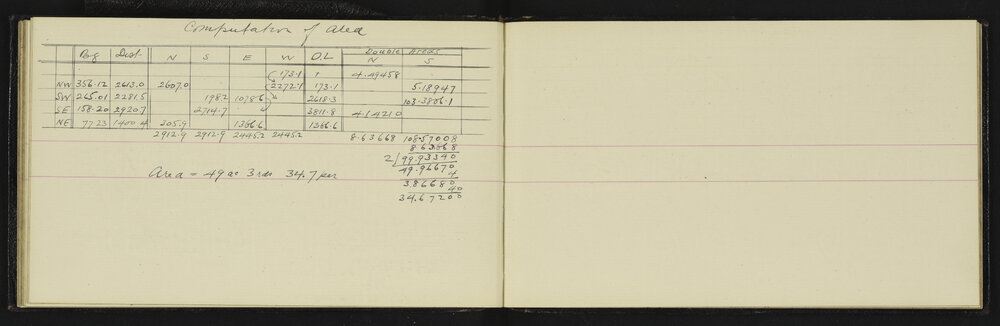 Computation of Area
Double Areas
Bg Dist N S E W D.L N S
173.1 1 4.49458
NW 356.12 2613.0 2607.0 2272.1 173.1 5.18947
SW 265.01 2281.5 198.2 1078.6 2618.3 103.3806.1
SE 158.20 2920.7 2714.7 3811.8 4.14210
NE 77.23 1400.4 305.9 1366.6 1366.6
2912.9 2912.9 2445.2 2445.2 8.63668 108.57008
8.63668
2 99.93340
49.96670
4
Area = 49 ac 3 rds 34.7 per
3.86680
40
34.67200